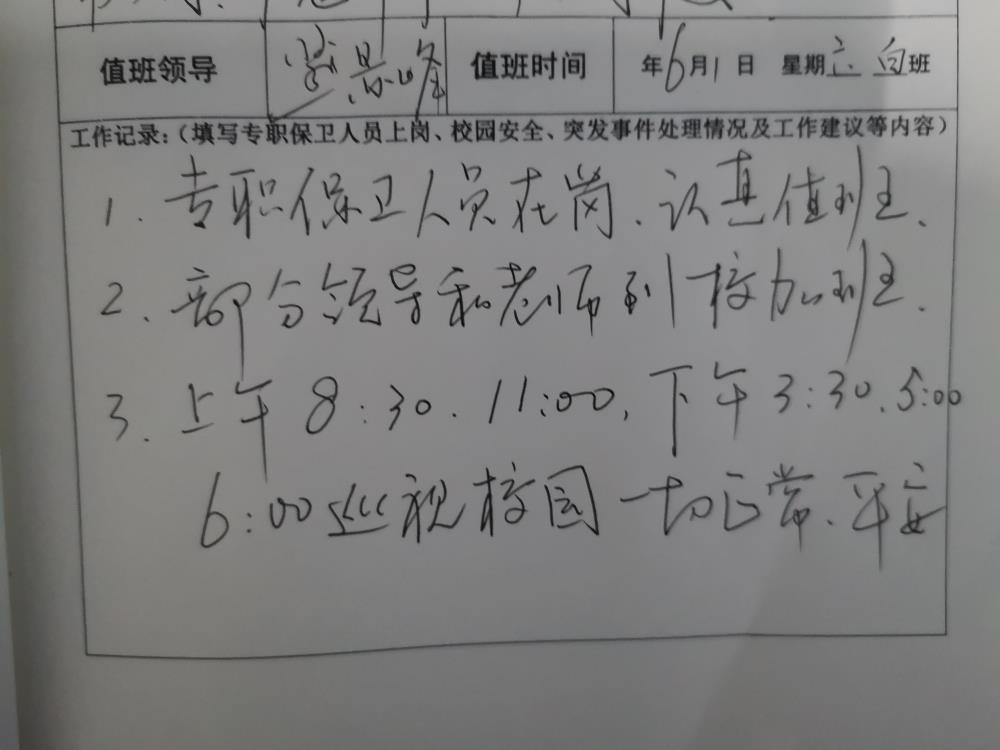 值班领导 值班时间 年6月1日 星期六 白班
工作记录：（填写专职保卫人员上岗、校园安全、突发事件处理情况及工作建议等内容）
1. 专职保卫人员在岗.认真值班.
2. 部分领导和老师到校加班.
3. 上午8:30.11:00,下午3:30.5:00
6:00巡视校园一切正常.平安